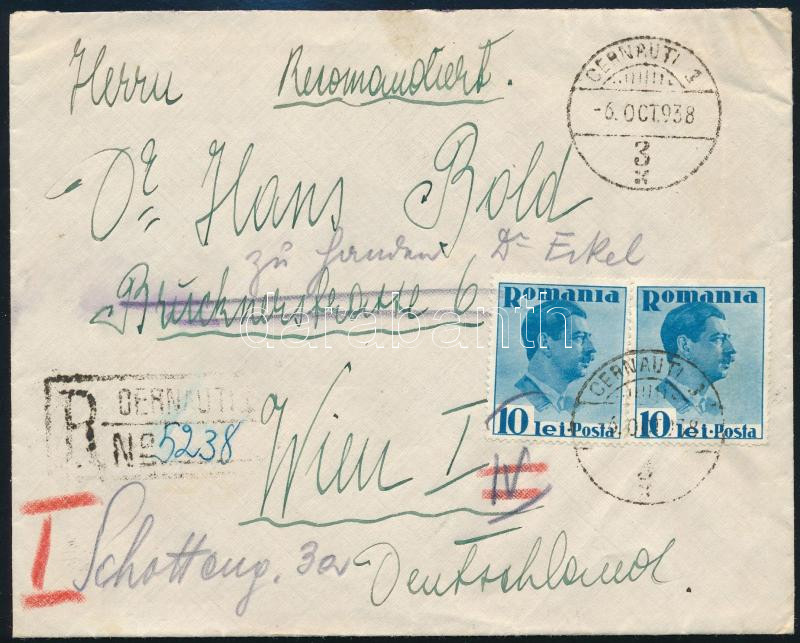 Herrn Recomandiert.
CERNAUTI 3
-6. OCT. 938
3
Dr. Hans Bold
zu Handen Dr Eckel
Brucknerstrasse 6
darabanth
ROMANIA
10 lei-Posta
ROMANIA
10 lei-Posta
CERNAUTI 3
R CERNAUTI
No 5238
Wien I
IV
I Schotteng. 3a
Deutschland.